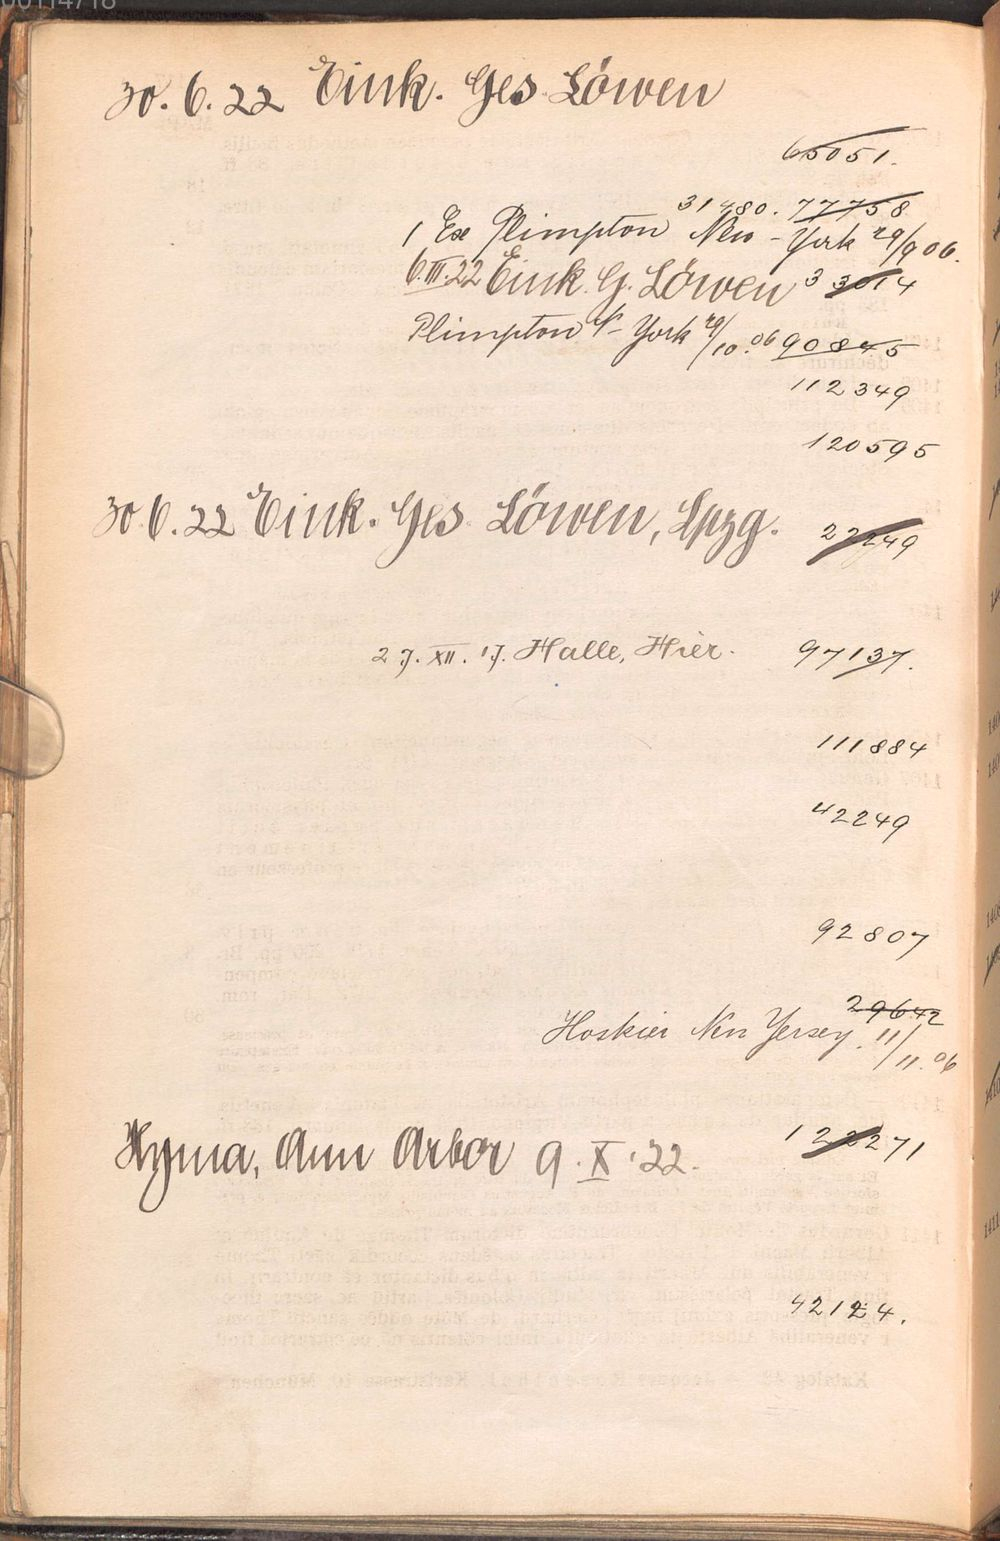 00114718
30. 6. 22 Eink. Ges. Löwen
65051.
31480. 77758
1 Ex Plimpton New-York 29/9 06.
6.III.22 Eink. G. Löwen 3 3014
Plimpton N-York 29/10. 06 90845
112349
120595
30 6. 22 Eink. Ges. Löwen, Lpzg. 22249
27. XII. 17. Halle, Hier. 97137.
111884
42249
92807
29642
Hoskier New Yersey. 11/11. 06
Hyma, Ann Arbor 9. X. 22. 122271
42124.